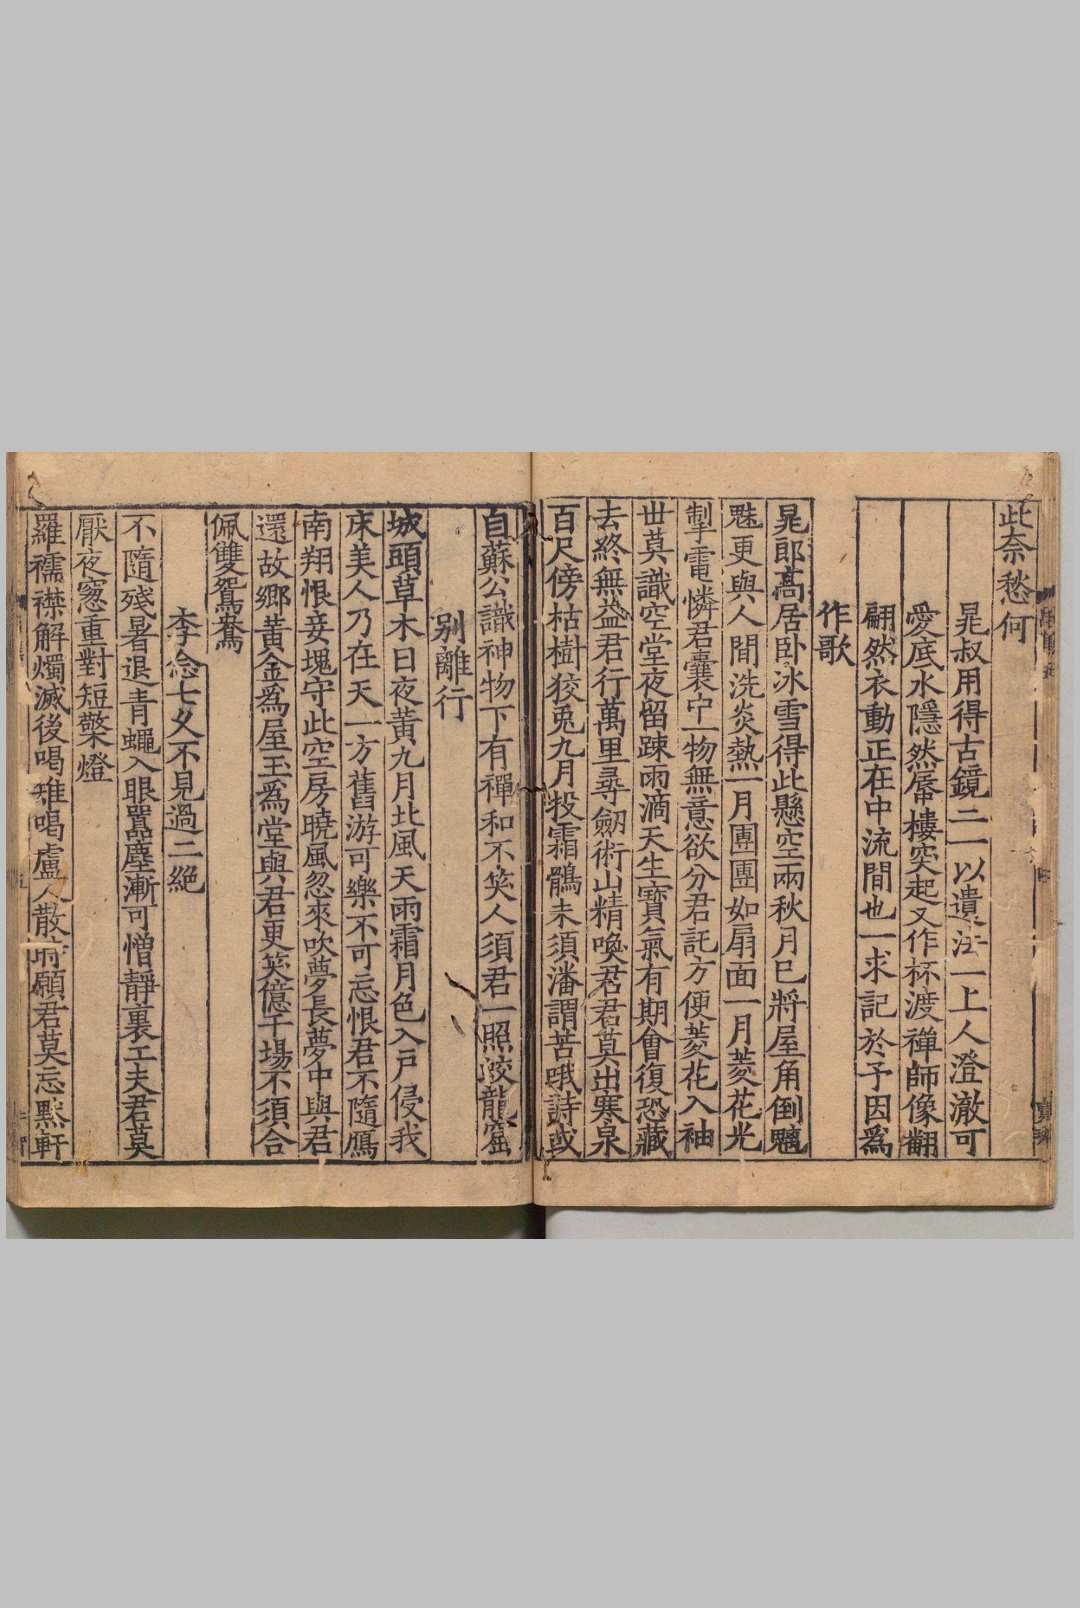 此奈愁何
晁叔用得古鏡三一以遺法一上人澄澈可
愛底水隱然蜃樓突起又作杯渡禪師像翻
翩然衣動正在中流間也一求記於予因爲
作歌
晁郎高居卧冰雪得此懸空兩秋月已將屋角倒魑
魅更與人間洗炎熱一月團團如扇面一月菱花光
掣電憐君囊中一物無意欲分君託方便菱花入袖
世莫識空堂夜留踈雨滴天生寶氣有期會復恐藏
去終無益君行萬里尋劒術山精喚君君莫出寒泉
百尺傍枯樹狡兎九月投霜鶻未須潘謂苦哦詩或
自蘇公識神物下有禪和不笑人須君一照蛟龍窟
別離行
城頭草木日夜黃九月北風天雨霜月色入戸侵我
床美人乃在天一方舊游可樂不可忘恨君不隨鴈
南翔恨妾塊守此空房曉風忽來吹夢長夢中與君
還故鄉黃金爲屋玉爲堂與君更笑億千場不須合
佩雙鴛鴦
李念七夕不見過二絕
不隨殘暑退青蠅入眼嚚塵漸可憎靜裏工夫君莫
厭夜窓重對短檠燈
羅襦襟解燭滅後喝雉喝盧人散時願君莫忘默軒